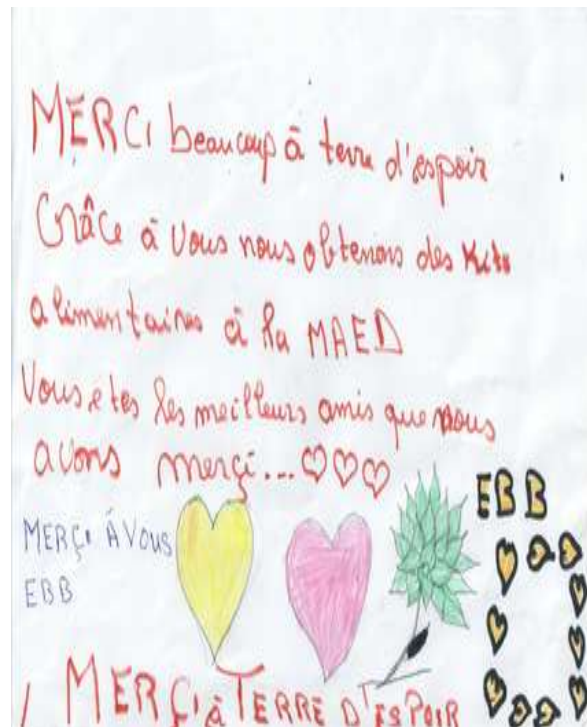 MERCi beaucoup à terre d'espoir
Grâce à vous nous obtenons des Kits
alimentaires à la MAED
Vous etes les meilleurs amis que nous
avons merçi...
EBB
MERÇi À VOUS
EBB
MERÇi à TERRE D'ESPOIR